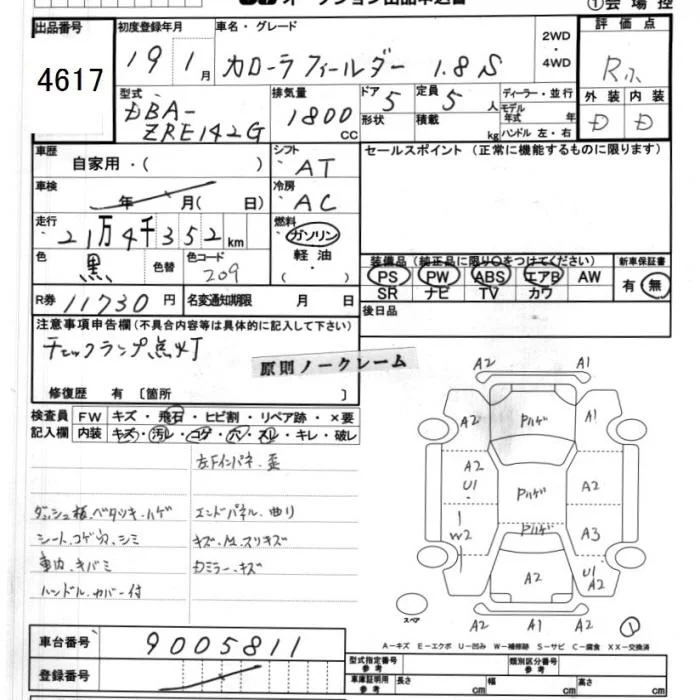 オークション出品申込書
① 会場控
出品番号
4617
初度登録年月
19 1月
車名・グレード
カローラフィールダー 1.8S
2WD
・
4WD
評価点
R
外装 内装
D D
型式
DBA-
ZRE142G
排気量
1800 CC
ドア 5
定員 5 人
形状
積載 kg
ディーラー・並行
モデル
年式 年
ハンドル 左・右
車歴
自家用・( )
シフト
AT
セールスポイント (正常に機能するものに限ります)
車検
年 月( 日)
冷房
AC
走行
21万4千352km
燃料
ガソリン
軽油
・( )
色
黒
色替
色コード
209
R券 11730円
名変通知期限 月 日
装備品 (純正品に限り○をつけてください)
PS PW ABS エアB AW
SR ナビ TV カワ
新車保証書
有・無
後日品
注意事項申告欄(不具合内容等は具体的に記入して下さい)
チェックランプ点灯
原則ノークレーム
修復歴 有 〔箇所 〕
検査員
記入欄
FW キズ・飛石・ヒビ割・リペア跡・×要
内装 キズ・汚レ・コゲ・穴・スレ・キレ・破レ
左Fインパネ・歪
ダッシュ板、ベタツキ・ハゲ
エンドパネル・曲り
シート、コゲ穴、シミ
キズ・A・スリキズ
車内、キバミ
Dミラー・キズ
ハンドル、カバー付
A2 A1
A2 Pハゲ A1
A2
U1 Pハゲ A2
W2 Pハゲ A3
A2 U1
A2
A2 A1 A2
スペア
①
A－キズ E－エクボ U－凹み W－補修跡 S－サビ C－腐食 XX－交換済
車台番号 9005811
登録番号
型式指定番号
類別区分番号
車庫証明用
参考
長さ cm 幅 cm 高さ cm